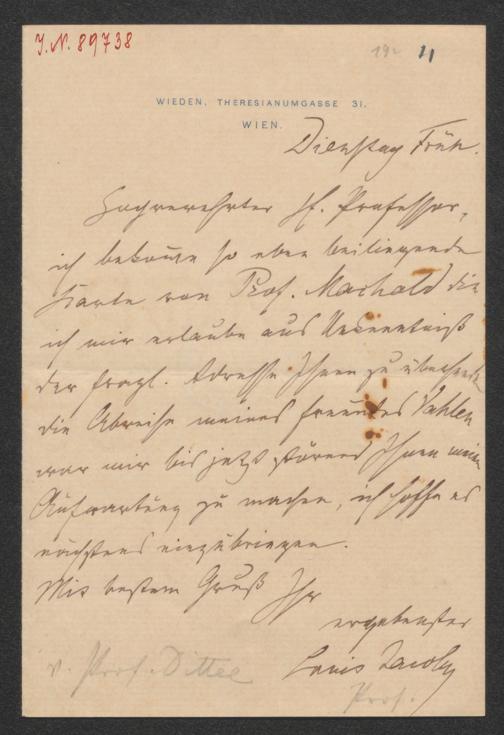 J. N. 89738
11
WIEDEN, THERESIANUMGASSE 31.
WIEN.
Dienstag Früh.
Hochverehrter H. Professor,
ich bekom̄e so eben beiliegende
Karte von Prof. Machold die
ich mir erlaube aus Unkenntniß
der fragl. Adresse Ihnen zu übersenden
die Abreise meines Freundes Vahlen
war mir bis jetzt störend Ihnen meine
Aufwartung zu machen, ich hoffe es
nächstens einzubringen.
Mit bestem Gruß Ihr
ergebenster
Louis Jacoby
v. Prof. Dittel
Prof.